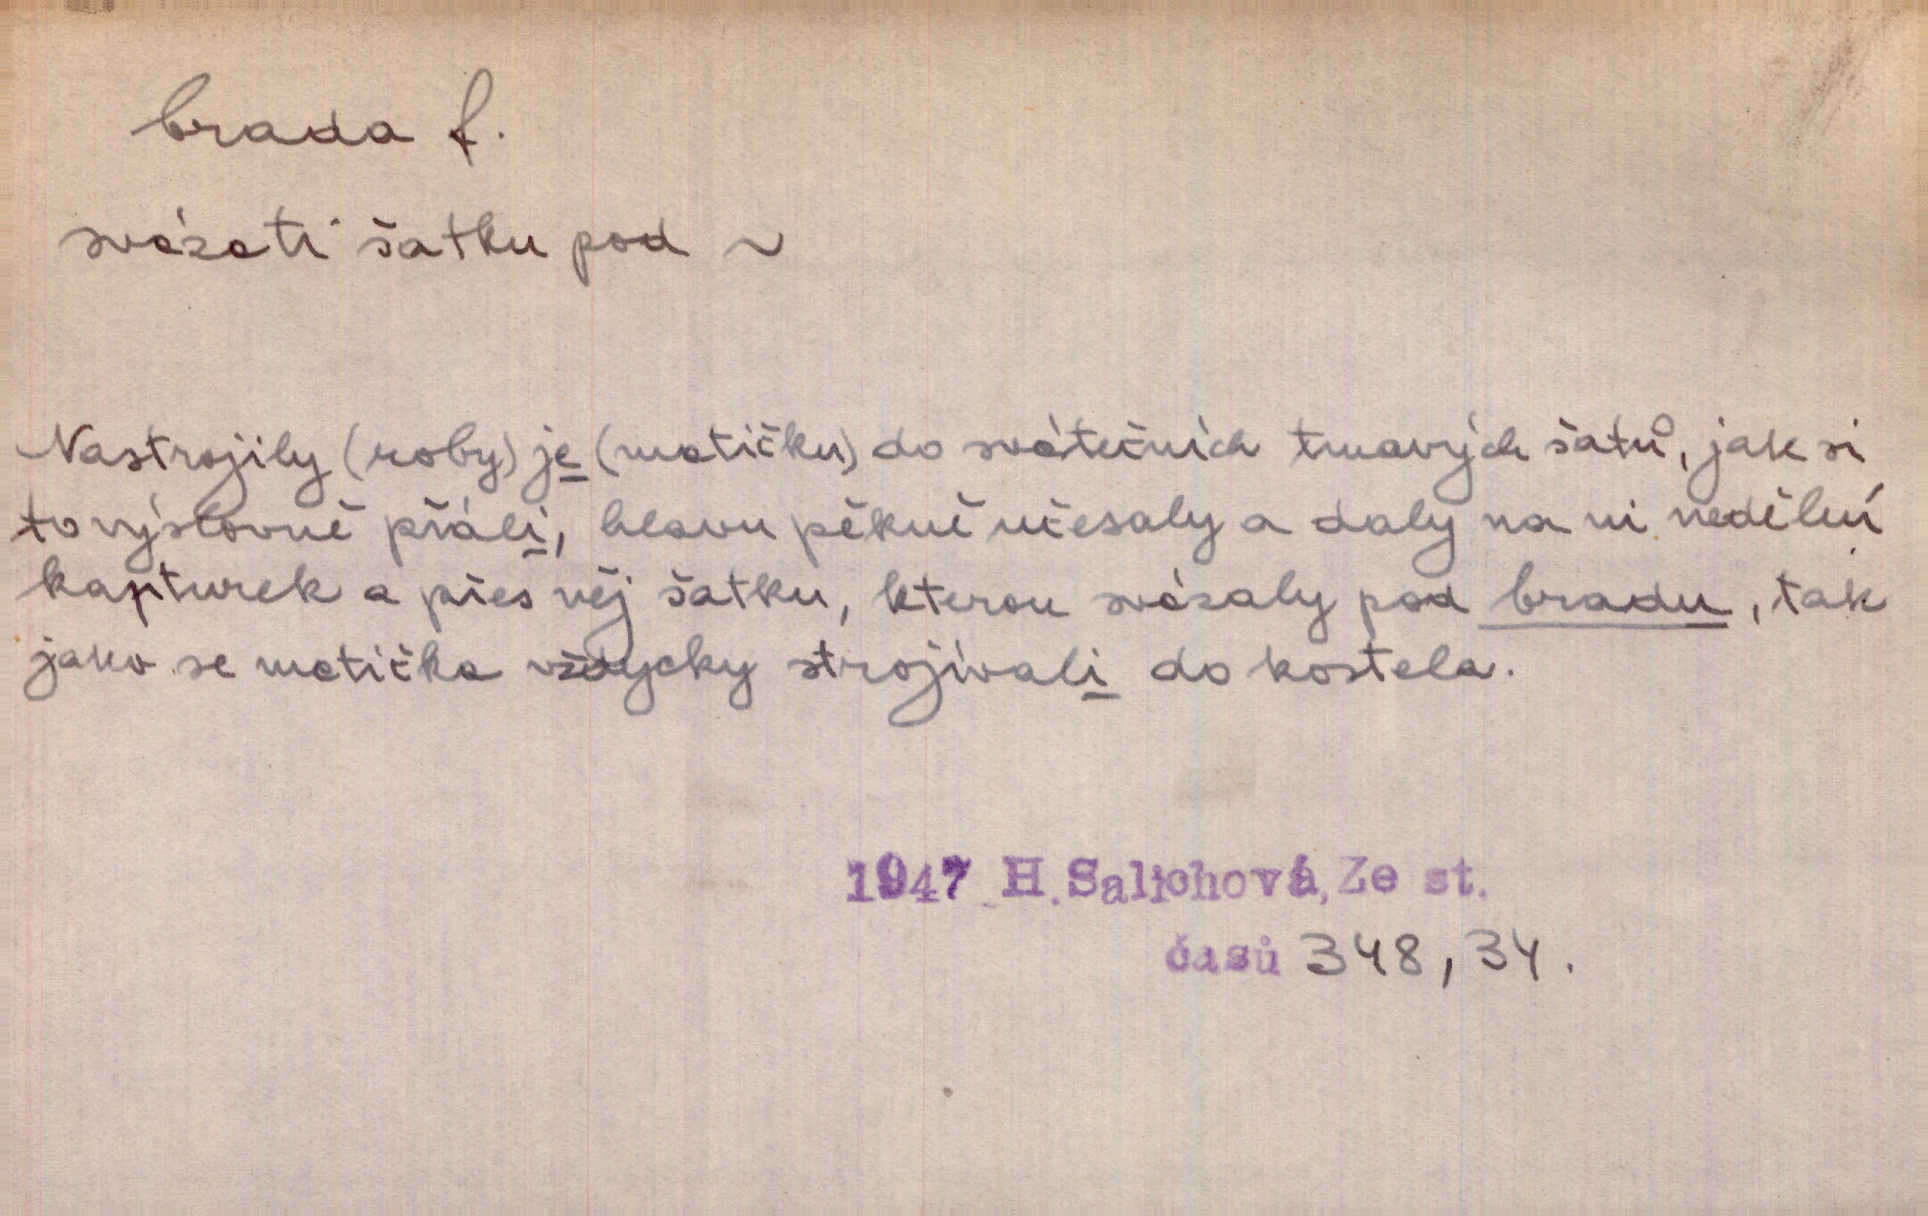 brada f.
svázati šatku pod ~
Nastrojily (roby) je (matičku) do svátečních tmavých šatů, jak si
to výslovně přáli, hlavu pěkně učesaly a daly na ni nedělní
kapturek a přes něj šatku, kterou svázaly pod bradu, tak
jako se matička vždycky strojívali do kostela.
1947 H. Salichová, Ze st.
časů 348, 34.